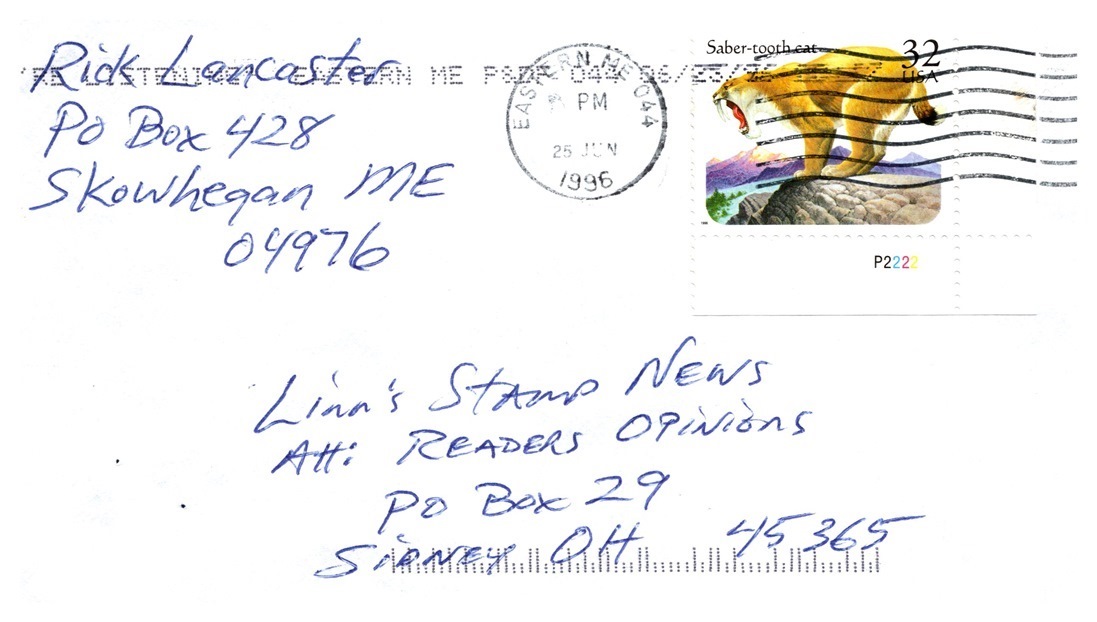 Rick Lancaster
PO Box 428
Skowhegan ME
04976
EASTERN ME 044
PM
25 JUN
1996
Saber-tooth cat
32
USA
P2222
Linn's Stamp News
Att: READERS OPINIONS
PO Box 29
SIDNEY OH 45365